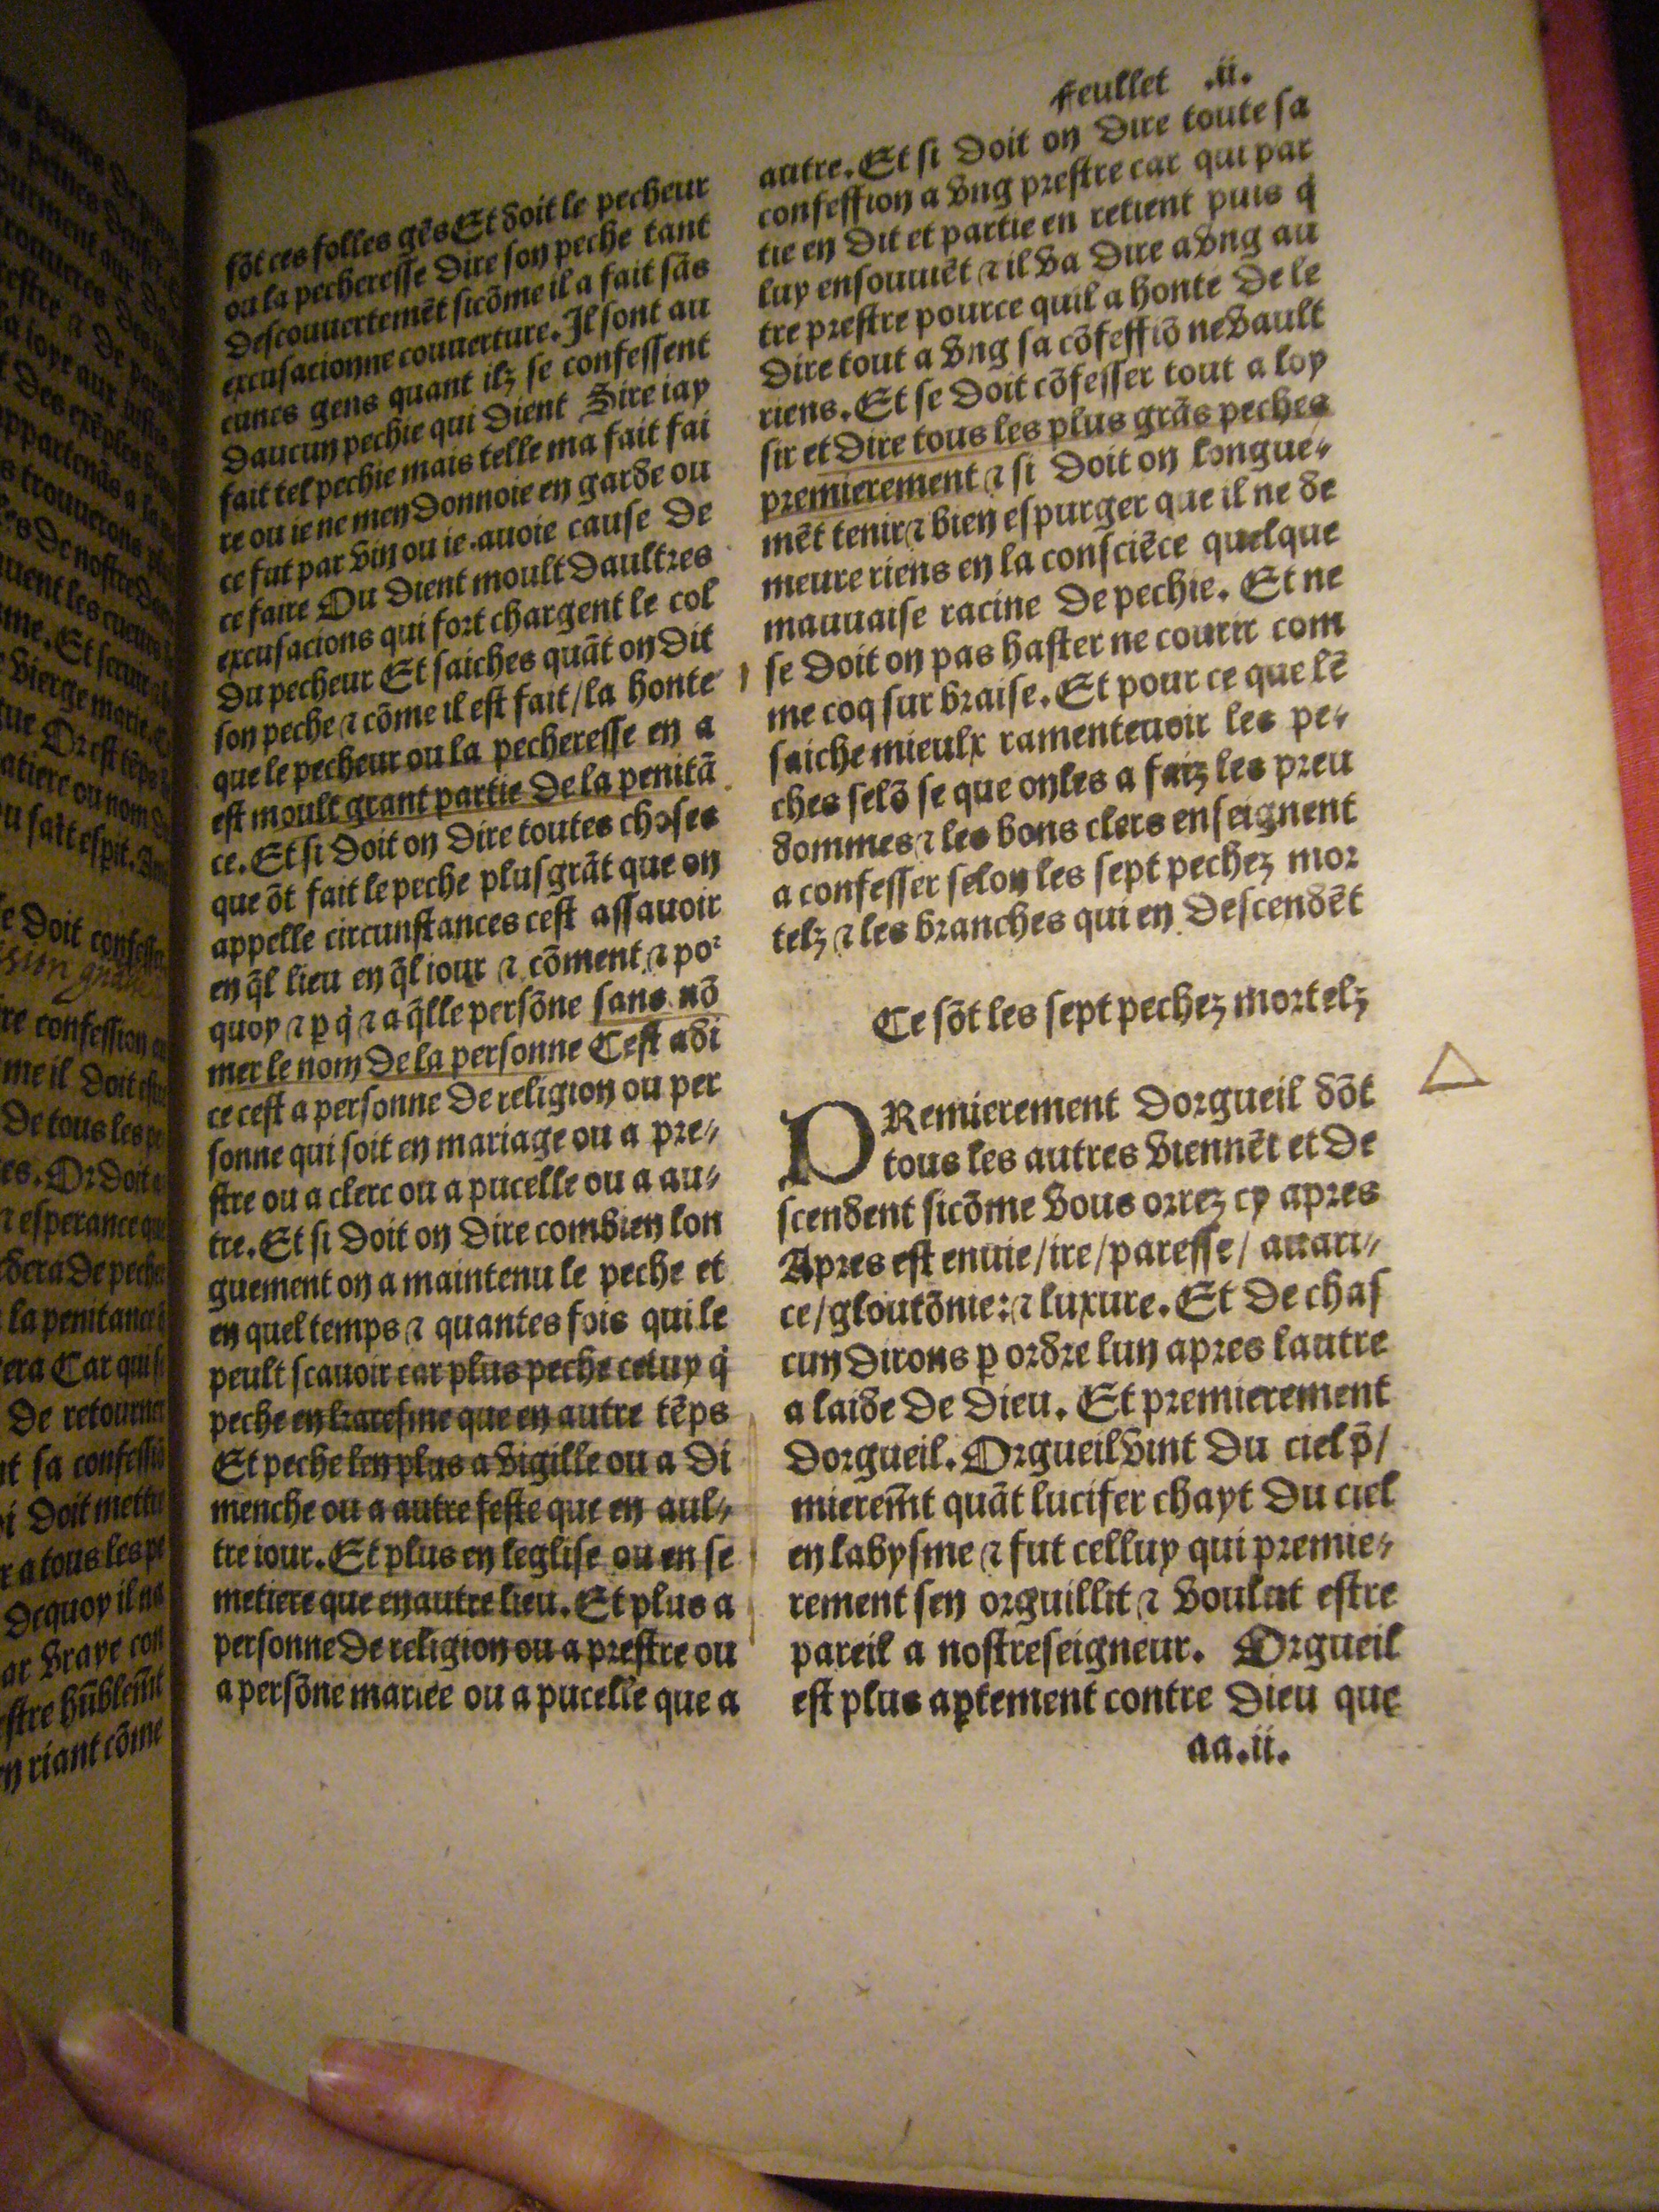 feullet .ii.
fõt ces folles gẽs Et doit le pecheur
ou la pecheresse dire son peche tant
descouuertemẽt sicõme il a fait sãs
excusacionne couuerture. Il sont au
cunes gens quant ilz se confessent
daucun pechie qui dient Sire iay
fait tel pechie mais telle ma fait fai
re ou ie ne men donnoie en garde ou
ce fut par vin ou ie auoie cause de
ce faire Ou dient moult daultres
excusacions qui fort chargent le col
du pecheur Et saiches quãt on dit
son peche ⁊ cõme il est fait/la honte
que le pecheur ou la pecheresse en a
est moult grant partie de la penitã
ce. Et si doit on dire toutes choses
que õt fait le peche plus grãt que on
appelle circunstances cest assauoir
en q̃l lieu en q̃l iour ⁊ cõment ⁊ por
quoy ⁊ ꝑ q̇ ⁊ a q̃lle persõne sans nõ
mer le nom de la personne Cest adi
ce cest a personne de religion ou per
sonne qui soit en mariage ou a pre/
stre ou a clerc ou a pucelle ou a au/
tre. Et si doit on dire combien lon
guement on a maintenu le peche et
en quel temps ⁊ quantes fois qui le
peult scauoir car plus peche celuy q̇
peche en karesme que en autre tẽps
Et peche len plus a vigille ou a di
menche ou a autre feste que en aul/
tre iour. Et plus en leglise ou en se
metiere que en autre lieu. Et plus a
personne de religion ou a prestre ou
a persõne mariee ou a pucelle que a
autre. Et si doit on dire toute sa
confession a vng prestre car qui par
tie en dit et partie en retient puis q̇
luy ensouuiẽt ⁊ il va dire a vng au
tre prestre pource quil a honte de le
dire tout a vng sa cõfessiõ ne vault
riens. Et se doit cõfesser tout a loy
sir et dire tous les plus grãs peches
premierement ⁊ si doit on longue/
mẽt tenir ⁊ bien espurger que il ne de
meure riens en la consciẽce quelque
mauuaise racine de pechie. Et ne
se doit on pas haster ne courir com
me coq sur braise. Et pour ce que lẽ
saiche mieulx ramenteuoir les pe/
ches selõ se que on les a faiz les preu
dommes ⁊ les bons clers enseignent
a confesser selon les sept pechez mor
telz ⁊ les branches qui en descendẽt
Ce sõt les sept pechez mortelz
PRemierement dorgueil dõt
tous les autres viennẽt et de
scendent sicõme vous orrez cy apres
Apres est enuie/ire/paresse/auari/
ce/gloutõnie: ⁊ luxure. Et de chas
cun dirons ꝑ ordre lun apres lautre
a laide de dieu. Et premierement
dorgueil. Orgueil vint du ciel p̃/
mierem̃t quãt lucifer chayt du ciel
en labysme ⁊ fut celluy qui premie/
rement sen orguillit ⁊ voulut estre
pareil a nostreseigneur. Orgueil
est plus aꝑtement contre dieu que
aa.ii.